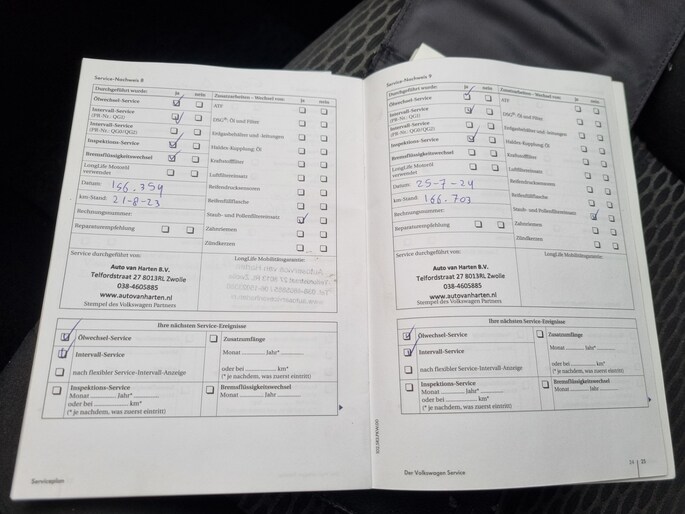 Service-Nachweis 8
Durchgeführt wurde: ja nein
Ölwechsel-Service
Intervall-Service
(PR-Nr.: QG1)
Intervall-Service
(PR-Nr.: QG0/QG2)
Inspektions-Service
Bremsflüssigkeitswechsel
LongLife Motoröl
verwendet
Datum: 156.354
km/Stand: 21-8-23
Rechnungsnummer:
Reparaturempfehlung
Zusatzarbeiten – Wechsel von: ja nein
ATF
DSG®-Öl und Filter
Erdgasbehälter und -leitungen
Haldex-Kupplung: Öl
Kraftstofffilter
Luftfiltereinsatz
Reifendrucksensoren
Reifenfüllflasche
Staub- und Pollenfiltereinsatz
Zahnriemen
Zündkerzen
Service durchgeführt von:
Auto van Harten B.V.
Telfordstraat 27 8013RL Zwolle
038-4605885
www.autovanharten.nl
Stempel des Volkswagen Partners
LongLife Mobilitätsgarantie:
Ihre nächsten Service-Ereignisse
Ölwechsel-Service
Intervall-Service
nach flexibler Service-Intervall-Anzeige
Zusatzumfänge
Monat Jahr*
oder bei km*
(* je nachdem, was zuerst eintritt)
Inspektions-Service
Monat Jahr*
oder bei km*
(* je nachdem, was zuerst eintritt)
Bremsflüssigkeitswechsel
Monat Jahr
Serviceplan
Service-Nachweis 9
Durchgeführt wurde: ja nein
Ölwechsel-Service
Intervall-Service
(PR-Nr.: QG1)
Intervall-Service
(PR-Nr.: QG0/QG2)
Inspektions-Service
Bremsflüssigkeitswechsel
LongLife Motoröl
verwendet
Datum: 25-7-24
km/Stand: 166.703
Rechnungsnummer:
Reparaturempfehlung
Zusatzarbeiten – Wechsel von: ja nein
ATF
DSG®-Öl und Filter
Erdgasbehälter und -leitungen
Haldex-Kupplung: Öl
Kraftstofffilter
Luftfiltereinsatz
Reifendrucksensoren
Reifenfüllflasche
Staub- und Pollenfiltereinsatz
Zahnriemen
Zündkerzen
Service durchgeführt von:
Auto van Harten B.V.
Telfordstraat 27 8013RL Zwolle
038-4605885
www.autovanharten.nl
Stempel des Volkswagen Partners
LongLife Mobilitätsgarantie:
Ihre nächsten Service-Ereignisse
Ölwechsel-Service
Intervall-Service
nach flexibler Service-Intervall-Anzeige
Zusatzumfänge
Monat Jahr*
oder bei km*
(* je nachdem, was zuerst eintritt)
Inspektions-Service
Monat Jahr*
oder bei km*
(* je nachdem, was zuerst eintritt)
Bremsflüssigkeitswechsel
Monat Jahr
Der Volkswagen Service